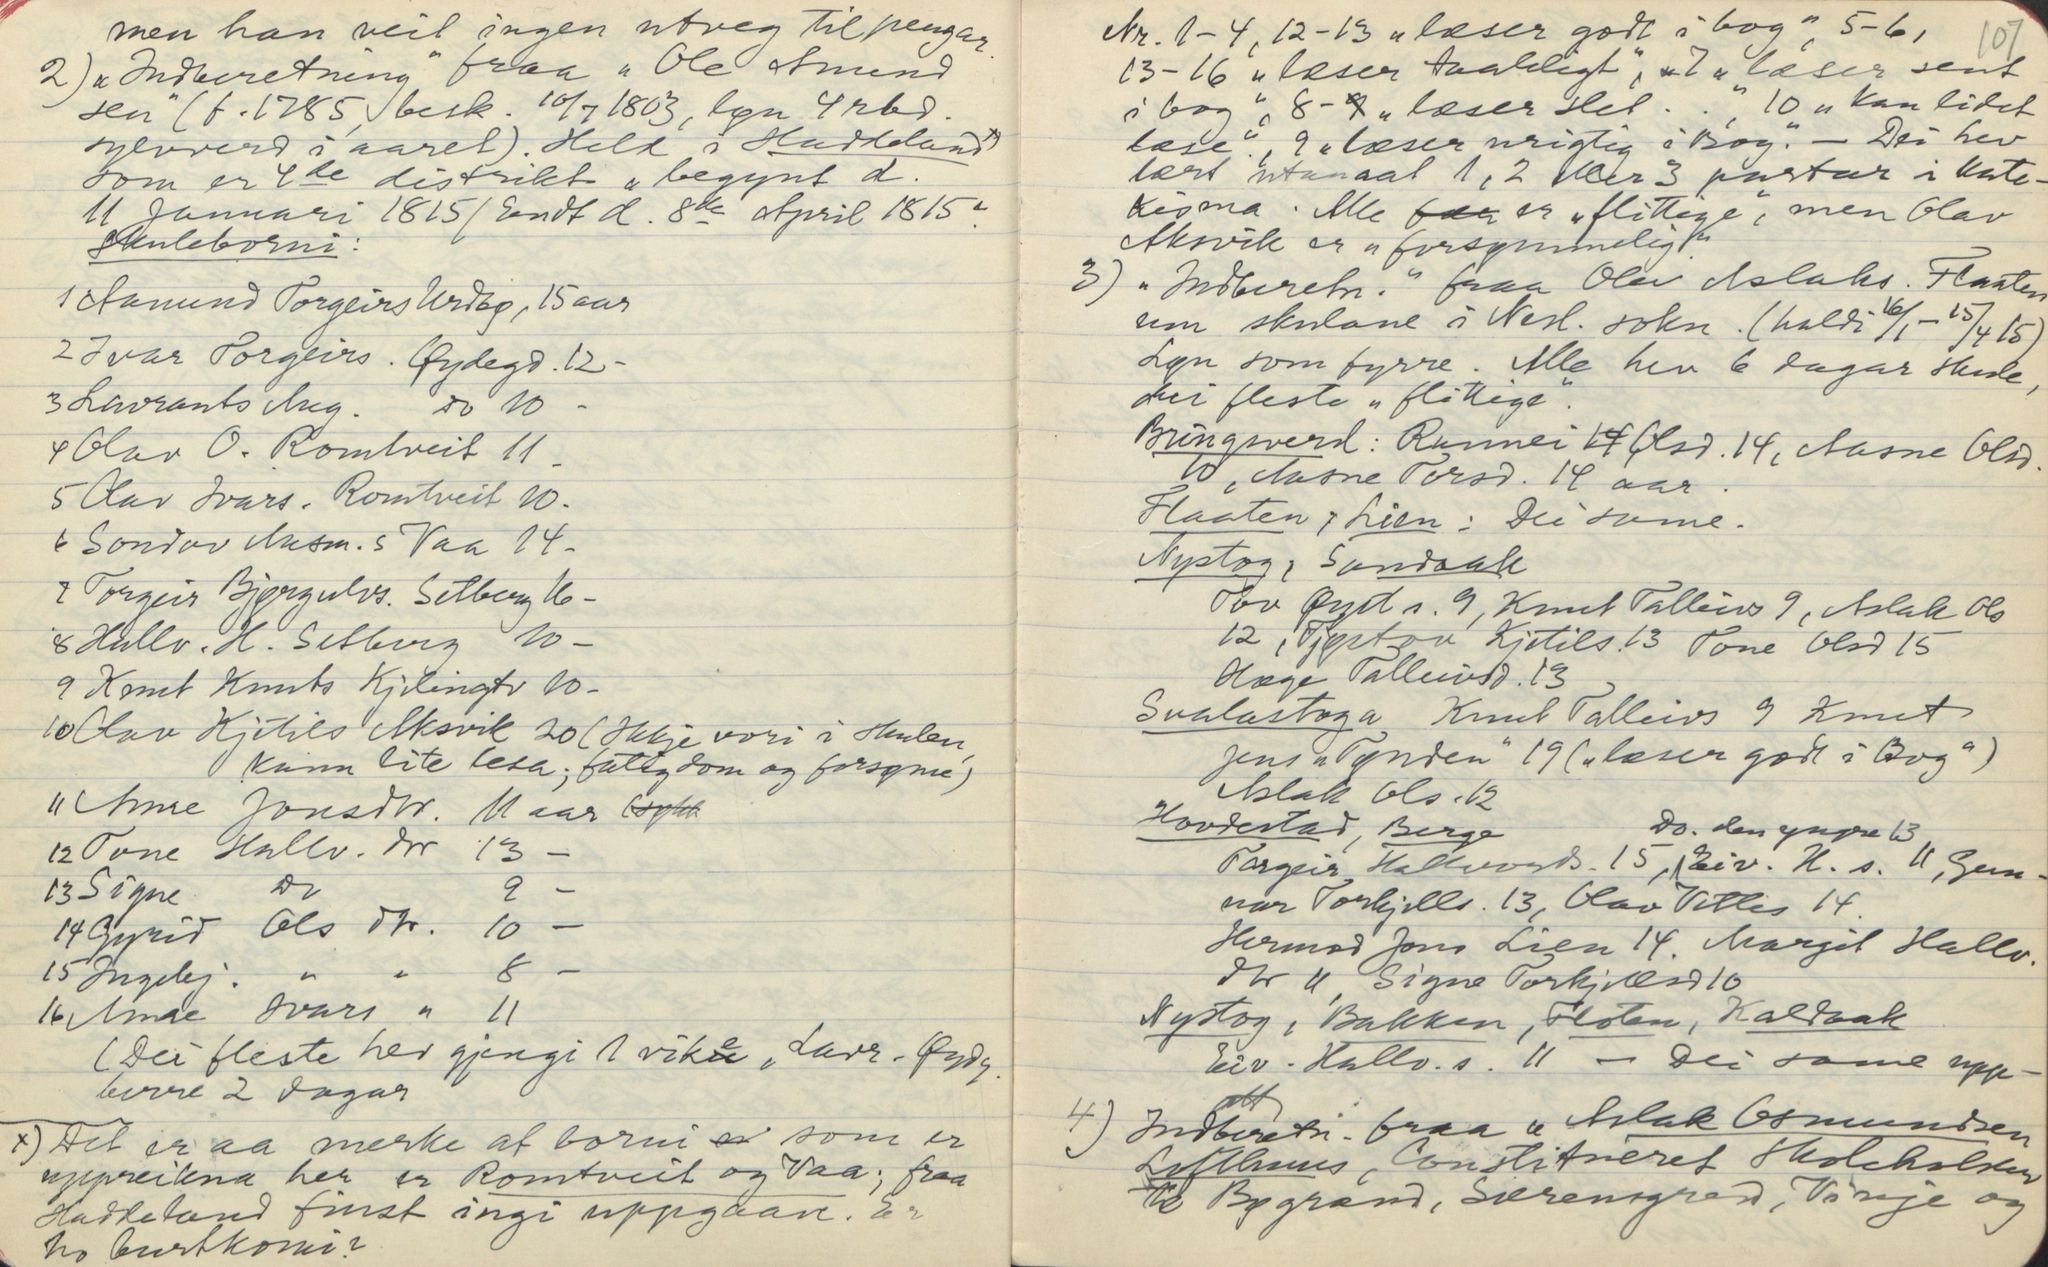 men han veit ingen utveg til pengar.
2) „Indberetning" fraa „Ole Amund
sen" (f. 1785, besk. 10/7 1803, løn 4 rbd.
sylvverd i aaret). Held i Haddeland x)
som er 4de distrikt „begynt d.
11 Januari 1815 / Endt d. 8de April 1815."
Skuleborni:
1 Aamund Torgeirs Urdbø, 15 aar
2 Ivar Torgeirs. Øydegd. 12 -
3 Lavrants Aug. do 10 -
4 Olav O. Romtveit 11 -
5 Olav Ivars. Romtveit 10 -
6 Sondov Aasm. s Vaa 14 -
7 Torgeir Bjørgulvs. Setberg 16 -
8 Hallv. H. Setberg 10 -
9 Knut Knuts Kjilingtv 10 -
10 Olav Kjetils Aksvik 20 (Ikkje vori i skulen,
kunn lite lesa; fattigdom og forsøme)
11 Anne Jonsdtr. 11 aar
12 Tone Hallv. dtr 13 -
13 Signe Do 9 -
14 Gyrid Ols dtr. 10 -
15 Ingebj. " " 8 -
16 Anne Ivars " 11
(Dei fleste hev gjengi 1 vike, Lavr. Øydg.
berre 2 dagar
x) Det er aa merke at borni som er
uppreikna her er Romtveit og Vaa; fraa
Haddeland finst ingi uppgaave. Er
ho burtkomi?
107
Nr. 1-4, 12-13 „læser godt i bog", 5-6,
13-16 „læser taaleligt", 7 „læser sent
i bog", 8 - „læser slet . . ", 10 „kan lidet
læse", 9 „læser urigtig i Bog." — Dei hev
lært utanaat 1, 2 eller 3 partar i kate-
kisma. Alle er „flittige", men Olav
Aksvik er „forsømmelig"
3) „Indberetn." fraa Olav Aslaks. Flaaten
um skulane i Nesl. sokn. (haldi 16/1 - 15/4 15)
Løn som fyrre. Alle hev 6 dagar skule,
dei fleste „flittige".
Bringsverd: Runnei Olsd. 14, Aasne Olsd.
10, Aasne Torsd. 14 aar.
Flaaten, Lien: Dei same.
Nystog, Sandaak
Tov Øyst s. 9, Knut Talleivs 9, Aslak Ols
12, Tjøstov Kjetils. 13 Tone Olsd 15
Hæge Talleivsd. 13
Svalastoga Knut Talleivs 9 Knut
Jens „Tynden" 19 („læser godt i Bog")
Aslak Ols. 12
Hovdestad, Berge Do. den yngre 13
Torgeir Hallvords. 15, Eiv. H. s. 11, Gun-
nar Torkjells. 13, Olav Vetles 14.
Hermod Jons Lien 14. Margit Hallv.
dtr 11, Signe Torkjellsd 10
Nystog, Bakken, Floten, Kaldaak
Eiv. Hallv. s. 11 — Dei same upp-
att
4) Indberetn. fraa „Aslak Osmundsen
Lofthuus, Constitueret Skoleholder
til Bøgrænd, Særensgrænd, Vinje og